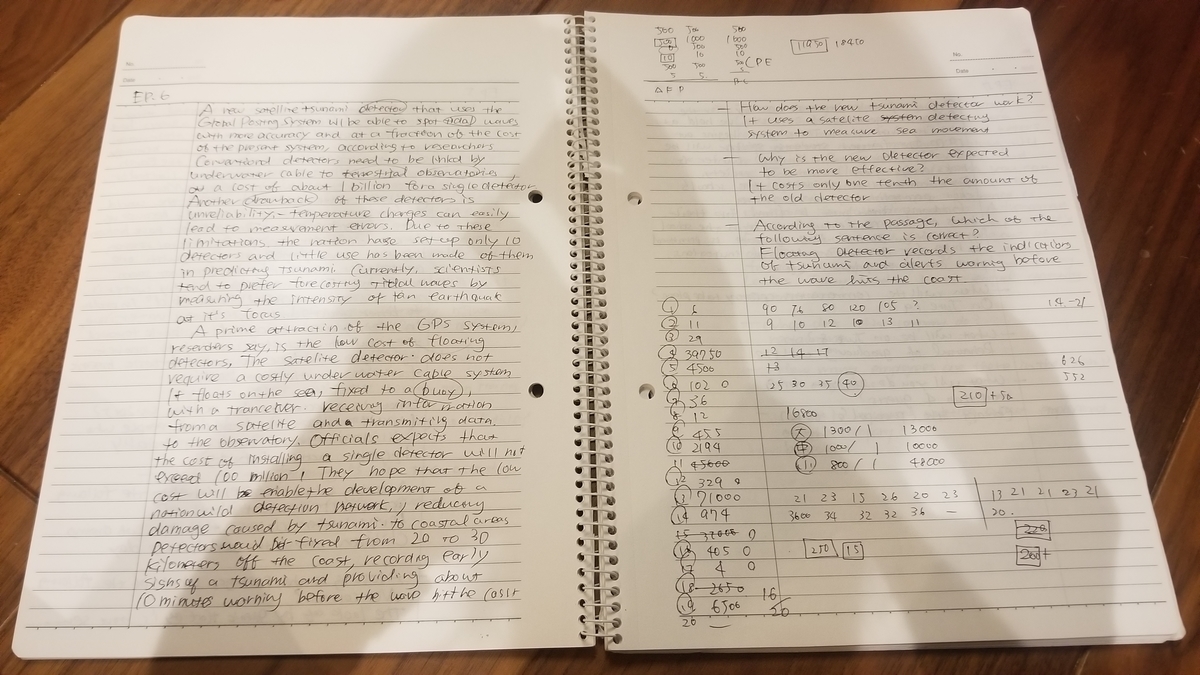 No.
Date
EP. 6
A new satellite tsunami detector that uses the
Global Positing System will be able to spot tidal waves
with more accuracy and at a fraction of the cost
of the present system, according to researchers
Conventional detector, need to be linked by
underwater cable to terrestrial observatories,
at a cost of about 1 billion for a single detector
Another drawback of these detectors is
unreliability - temperature charges can easily
lead to measurement errors. Due to these
limitations, the nation have set up only 10
detectors and little use has been made of them
in predicting tsunami Currently, scientists
tend to prefer forecasting tidal waves by
measuring the intensity of tan earthquak
at it's focus
A prime attractin of the GPS system,
reserders say, is the low cost of floating
detectors, The satelite detector does not
require a costly under water cable system
It floats on the sea, fixed to a buoy,
with a tranceiver. receiving information
from a satelite and a transmiting data.
to the observatory. Officials expects that
the cost of installing a single detector will not
exceed 100 million, They hope that the low
cost will be enable the development of a
nationwild detection network, reducing
damage caused by tsunami. to coastal areas
Detectors would be fixed from 20 to 30
kilometers off the coast, recording early
signs of a tsunami and providing about
10 minutes warning before the wave hit the coast
500 500 500
100 1000 1000
500 500
10 10 10
500 500 500 CPE
5 5 5
11950 18950
No.
Date
△ F P
- How does the new tsunami detector work?
It uses a satelite system detecting
system to measure sea movement
- Why is the new detector expected
to be more effective?
It costs only one tenth the amount of
the old detector
- According to the passage, which of the
following sentence is correct?
Floating detector records the indications
of tsunami and alerts warning before
the wave hits the coast
① 6 90 76 80 120 105 ? 14-21
② 11 9 10 12 10 13 11
③ 29
④ 39750 12 14 17
⑤ 4500 13 626
⑥ 102 0 25 30 35 40 552
⑦ 36 210 + 50
⑧ 12 16800
⑨ 455 大 1300/1 13000
⑩ 2194 中 1000/1 10000
11 45600 小 800/1 48000
⑫ 329 0
⑬ 71000 21 23 15 26 20 23 13 21 21 23 21
⑭ 974 3600 34 32 32 36 — 20.
15 32000 0 220
⑯ 405 0 210 15 260+
17 4 0
⑱ 2650 16
⑲ 6500 20
20 —